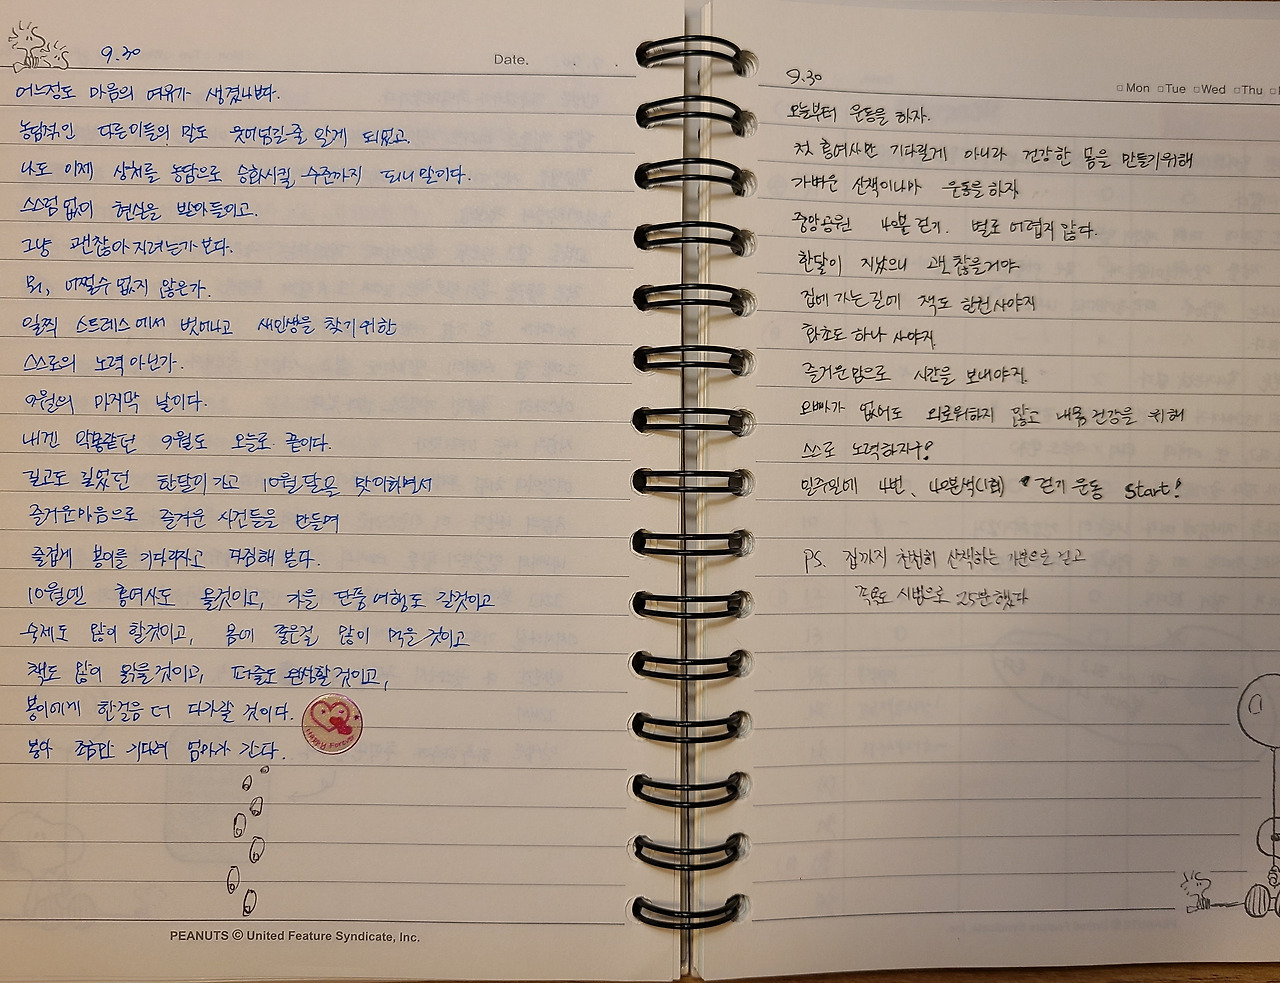 9.30
Date.
어느정도 마음의 여유가 생겼나보다.
농담적인 다른이들의 말도 웃어넘길줄 알게 되었고.
나도 이제 상처를 농담으로 승화시킬 수준까지 되니 말이다.
스스럼없이 현실을 받아들이고.
그냥 괜찮아 지려는가 보다.
뭐, 어쩔수 없지 않은가.
일찍 스트레스에서 벗어나고 새인생을 찾기위한
스스로의 노력 아닌가.
9월의 마지막 날이다.
내겐 악몽같던 9월도 오늘로 끝이다.
길고도 길었던 한달이 가고 10월달을 맞이하면서
즐거운마음으로 즐거운 시간들을 만들며
즐겁게 봉이를 기다리자고 다짐해 본다.
10월엔 홍여사도 올것이고, 가을 단풍여행도 갈것이고
숙제도 많이 할것이고, 몸에 좋은걸 많이 먹을것이고
책도 많이 읽을것이고, 퍼즐도 완성할것이고,
봉이에게 한걸음 더 다가갈 것이다.
봉아 조금만 기다려 엄마가 간다.
PEANUTS © United Feature Syndicate, Inc.
9.30
Mon Tue Wed Thu
오늘부터 운동을 하자.
첫 홍여사만 기다릴게 아니라 건강한 몸을 만들기위해
가벼운 산책이나마 운동을 하자
중앙공원 40분 걷기. 별로 어렵지 않다.
한달이 지났으니 괜찮을거야
집에 가는길에 책도 한권 사야지
화초도 하나 사야지.
즐거운맘으로 시간을 보내야지.
오빠가 없어도 외로워하지 않고 내몸 건강을 위해
스스로 노력하자구!
일주일에 4번, 40분씩(1회) 걷기 운동 start!
PS. 집까지 천천히 산책하는 기분으로 걷고
시범으로 25분했다